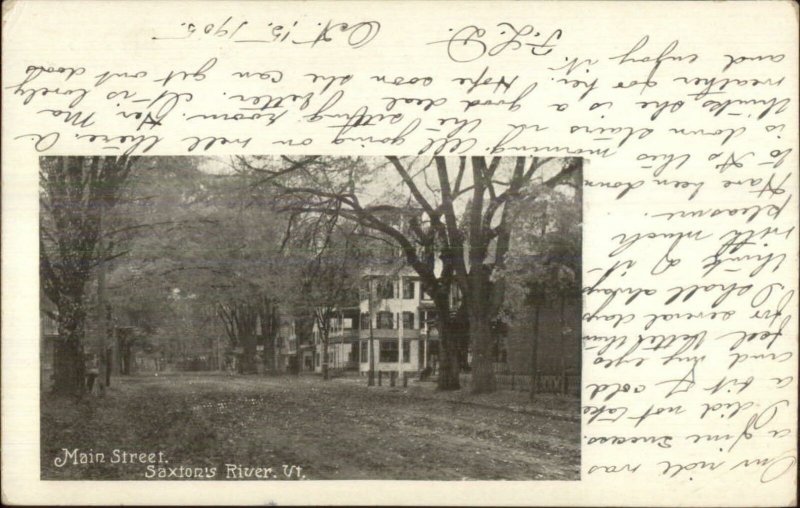 Our ride was
a fine success.
I did not take
a bit of cold
and my eyes
feel better than
for several days
I shall always
think of it
with much
pleasure.
Have been down
to No this morning. All going on well there. A.
is down stairs in the sitting room. Her Ma
thinks she is a good deal better. It is lovely
weather for her. Hope soon she can get out doors
and enjoy it.
F. L. D.
Oct. 15. 1905
Main Street.
Saxton's River. Vt.